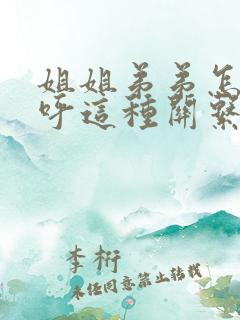 姐姐弟弟怎
呼這種關繫
李桁
未经同意禁止转载